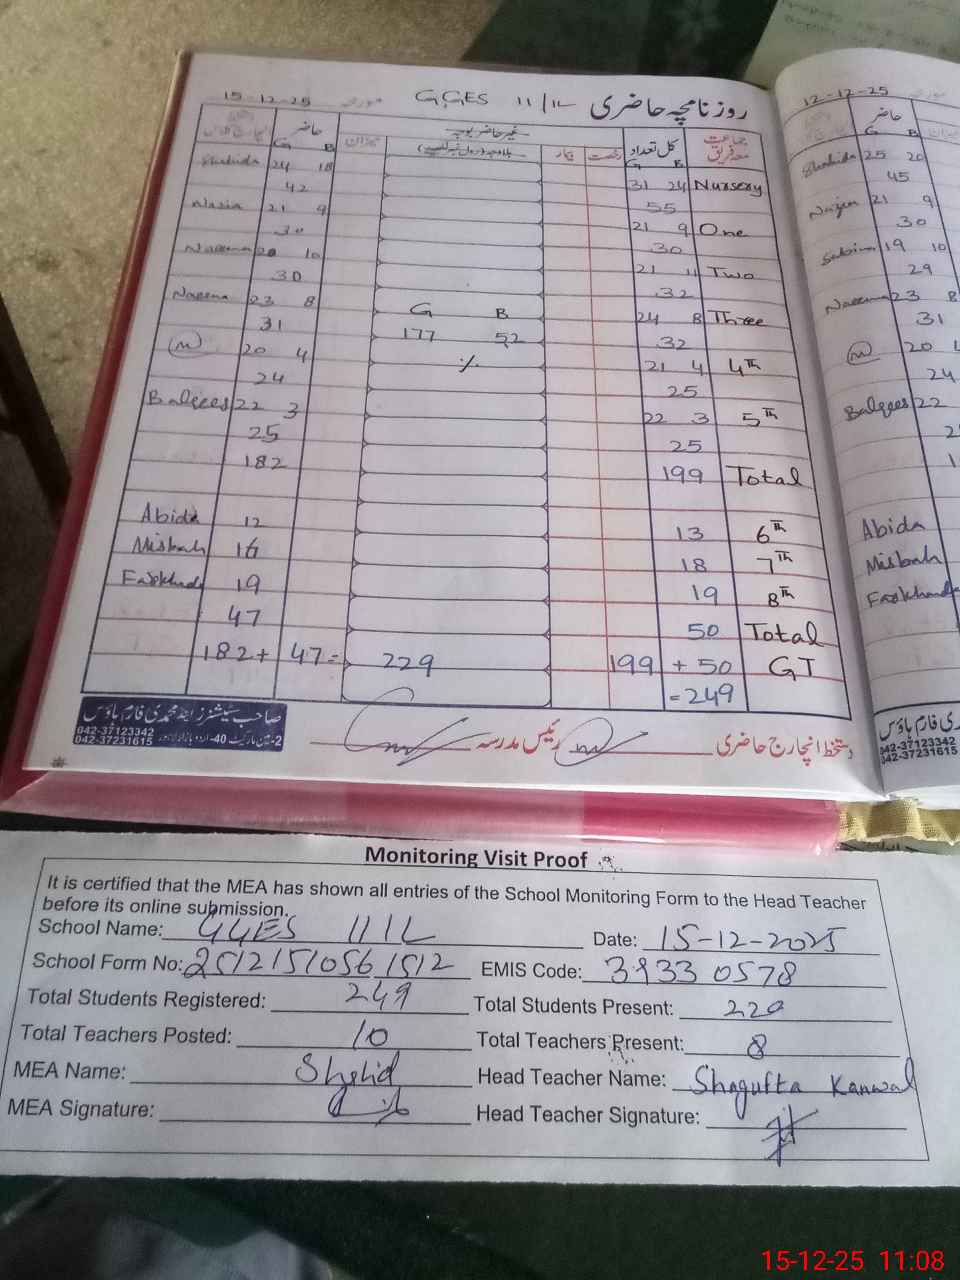 15-12-25 مورخہ GGES 11/1L روزنامچہ حاضری
حاضر غیر حاضر بوجہ کل تعداد جماعت
G B میزان بیمار رخصت G B معہ فریق
Shahida 24 18 31 24 Nursery
42 55
Nazia 21 9 21 9 One
30 30
Naeema 20 10 21 11 Two
30 32
Naeema 23 8 G B 24 8 Three
31 177 52 32
20 4 ٪ 21 4 4Th
24 25
Balqees 22 3 22 3 5Th
25 25
182 199 Total
Abida 12 13 6Th
Misbah 16 18 7Th
Farkhnda 19 19 8Th
47 50 Total
182 + 47 = 229 199 + 50 GT
=249
صاحب سٹیشنرز اینڈ محمدی فارم ہاؤس
042-37123342
042-37231615
2-مین مارکیٹ 40-اردو بازار لاہور
دستخط انچارج حاضری رئیس مدرسہ
12-12-25
حاضر
G B میزان
Shahida 25 20
45
21 9
30
19 10
29
Naeema 23 8
31
20
24
Balqees 22
Abida
Misbah
Farkhanda
فارم ہاؤس
042-37123342
042-37231615
Monitoring Visit Proof
It is certified that the MEA has shown all entries of the School Monitoring Form to the Head Teacher
before its online submission.
School Name: GGES 11 1L Date: 15-12-2025
School Form No: 2512151056 1512 EMIS Code: 39330578
Total Students Registered: 249 Total Students Present: 229
Total Teachers Posted: 10 Total Teachers Present: 8
MEA Name: Shahid Head Teacher Name: Shagufta Kanwal
MEA Signature: Head Teacher Signature:
15-12-25 11:08